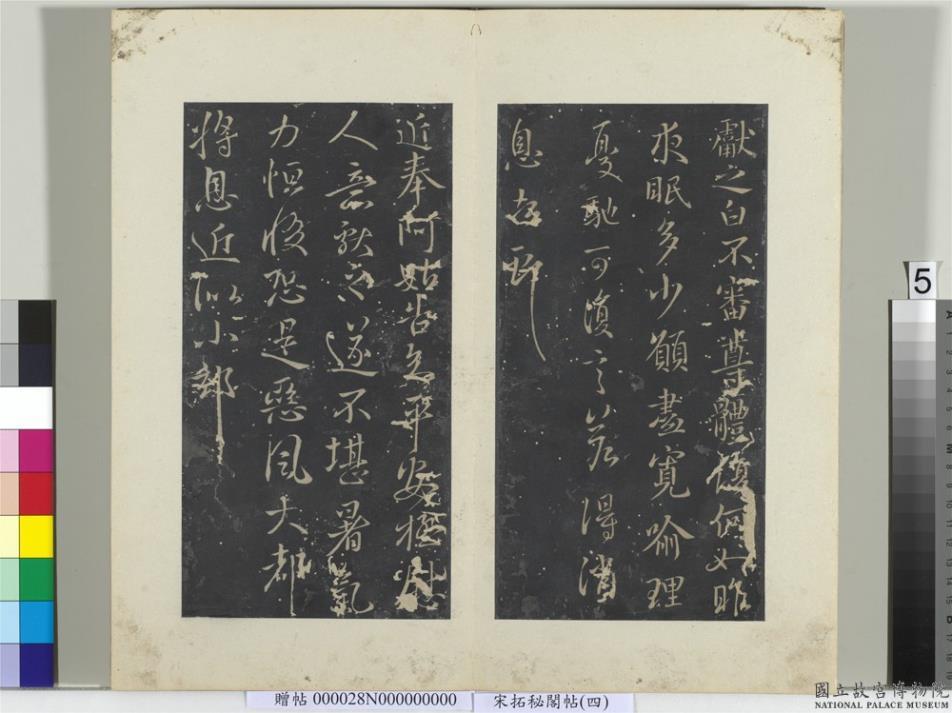 獻之白不審尊體復何如昨
夜眠多少願盡寬喻理
憂馳可復言若得消
息告卿
近奉阿姑告知平安極慰
人意獻之遂不堪暑氣
力恆惙恐是惡風大都
將息近似小卻
5
贈帖 000028N000000000
宋拓秘閣帖(四)
國立故宮博物院
NATIONAL PALACE MUSEUM